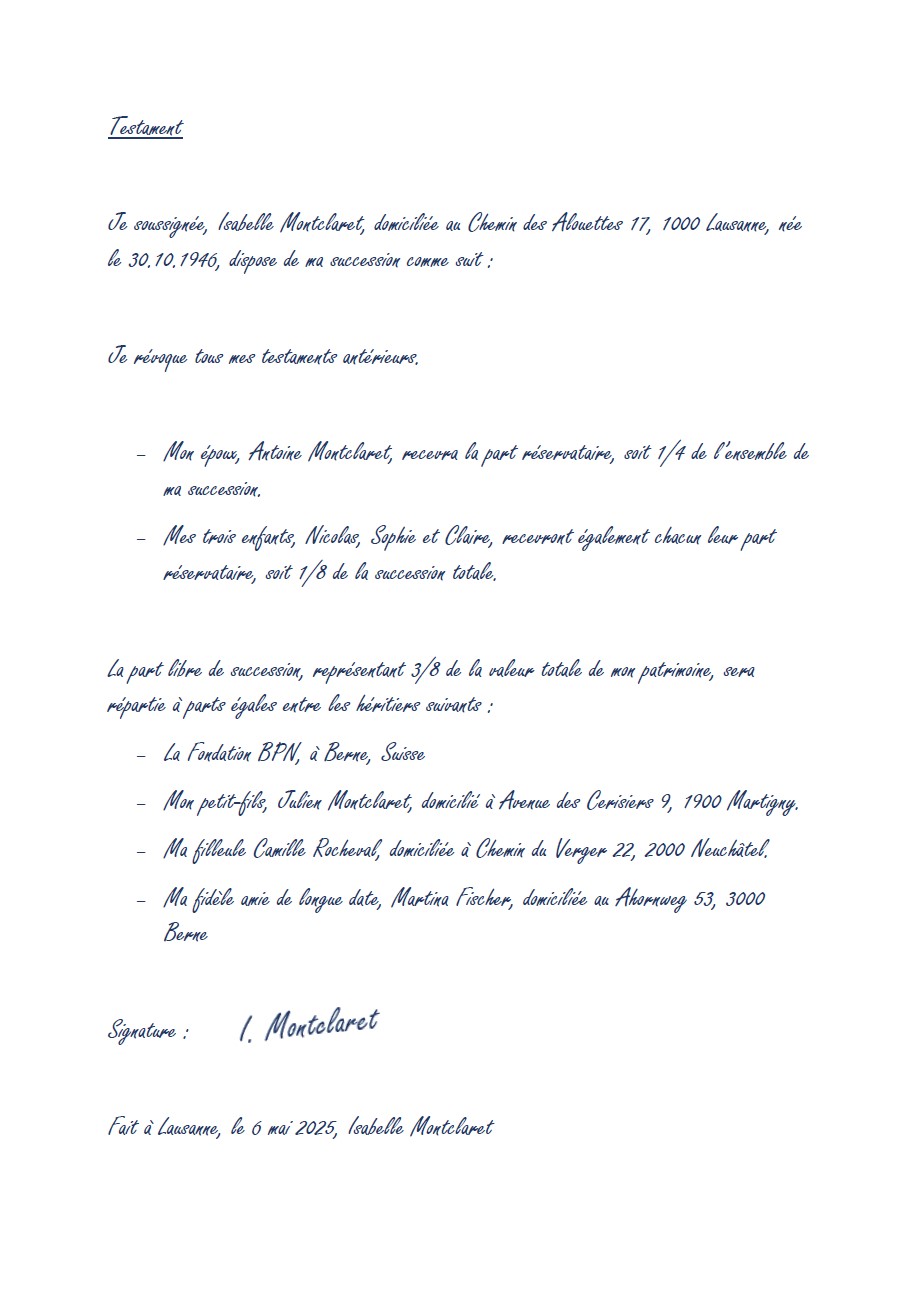 Testament
Je soussignée, Isabelle Montclaret, domiciliée au Chemin des Alouettes 17, 1000 Lausanne, née
le 30.10.1946, dispose de ma succession comme suit :
Je révoque tous mes testaments antérieurs.
– Mon époux, Antoine Montclaret, recevra la part réservataire, soit 1/4 de l'ensemble de
ma succession.
– Mes trois enfants, Nicolas, Sophie et Claire, recevront également chacun leur part
réservataire, soit 1/8 de la succession totale.
La part libre de succession, représentant 3/8 de la valeur totale de mon patrimoine, sera
répartie à parts égales entre les héritiers suivants :
– La Fondation BPN, à Berne, Suisse
– Mon petit-fils, Julien Montclaret, domicilié à Avenue des Cerisiers 9, 1900 Martigny.
– Ma filleule Camille Rocheval, domiciliée à Chemin du Verger 22, 2000 Neuchâtel.
– Ma fidèle amie de longue date, Martina Fischer, domiciliée au Ahornweg 53, 3000
Berne
Signature : I. Montclaret
Fait à Lausanne, le 6 mai 2025, Isabelle Montclaret